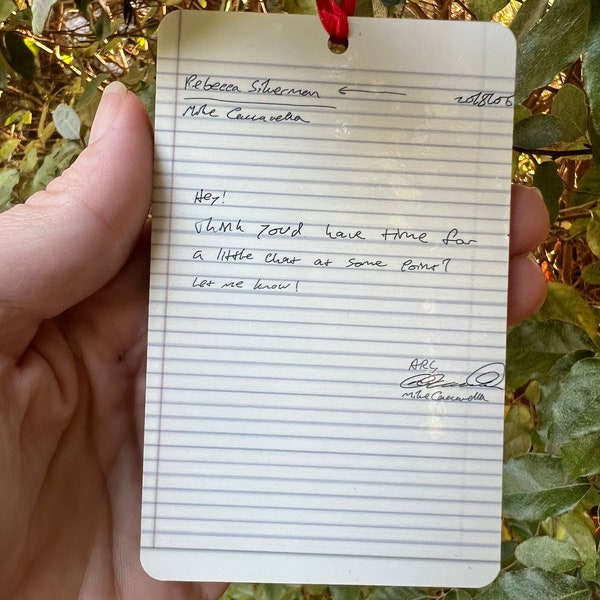 Rebecca Silverman ←
201806
Mike Caccavella
Hey!
Think you'd have time for
a little chat at some point?
Let me know!
ARG
Mike Caccavella